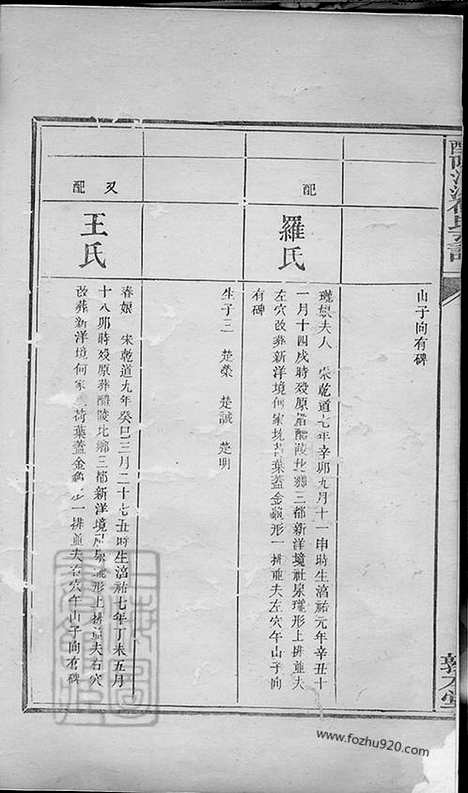 山子向有碑
配
羅氏
瓏娘夫人　宋乾道七年辛卯九月十一申時生淳祐元年辛丑十
一月十四戌時歿原葬醴陵北鄉三都新洋境社泉瓏形上排並夫
左穴改葬新洋境何家坑荷葉蓋金龜形一排並夫左穴午山子向
有碑
生子三　楚榮　楚誠　楚明
又配
王氏
春娘　宋乾道九年癸巳三月二十七丑時生淳祐七年丁未五月
十八卯時歿原葬醴陵北鄉三都新洋境社泉瓏形上排並夫右穴
改葬新洋境何家荷葉蓋金龜形一排並夫右穴午山子向有碑
敦本堂
www.fozhu920.com